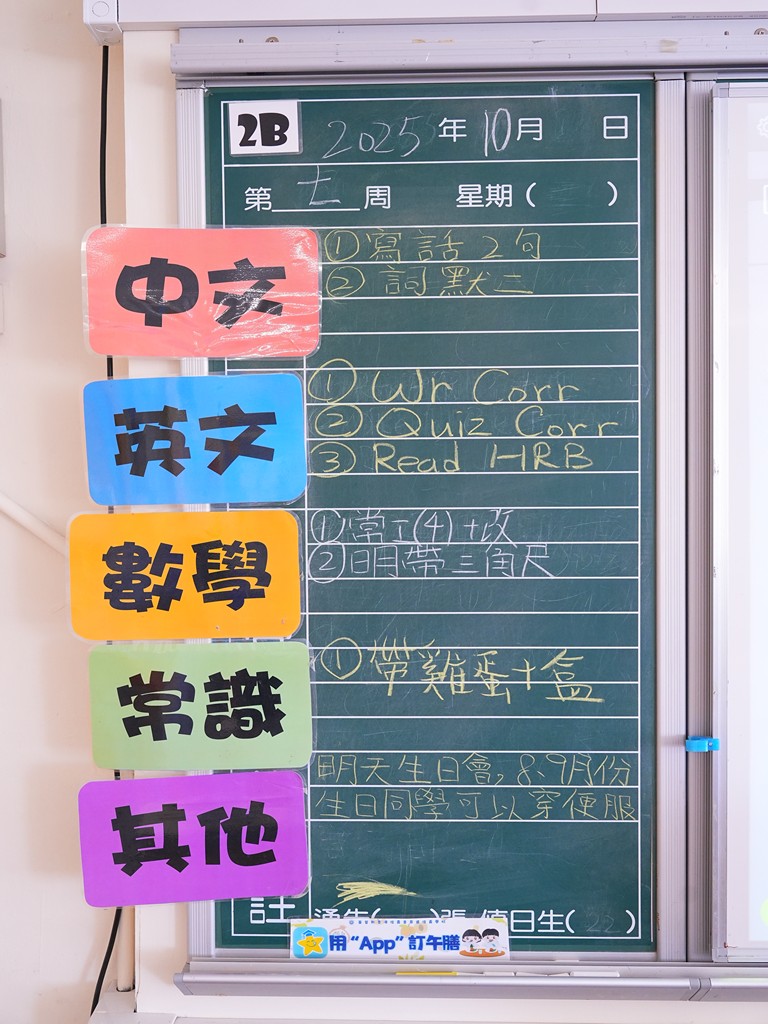 2B 2025年 10月 日
第 七 周 星期( )
中文
①寫話2句
②詞默二
英文
① Wr Corr
② Quiz Corr
③ Read HRB
數學
①常工(4)+改
②明帶三角尺
常識
①帶雞蛋+盒
其他
明天生日會,8、9月份
生日同學可以穿便服
註 通告( )張 值日生(22)
用“App”訂午膳